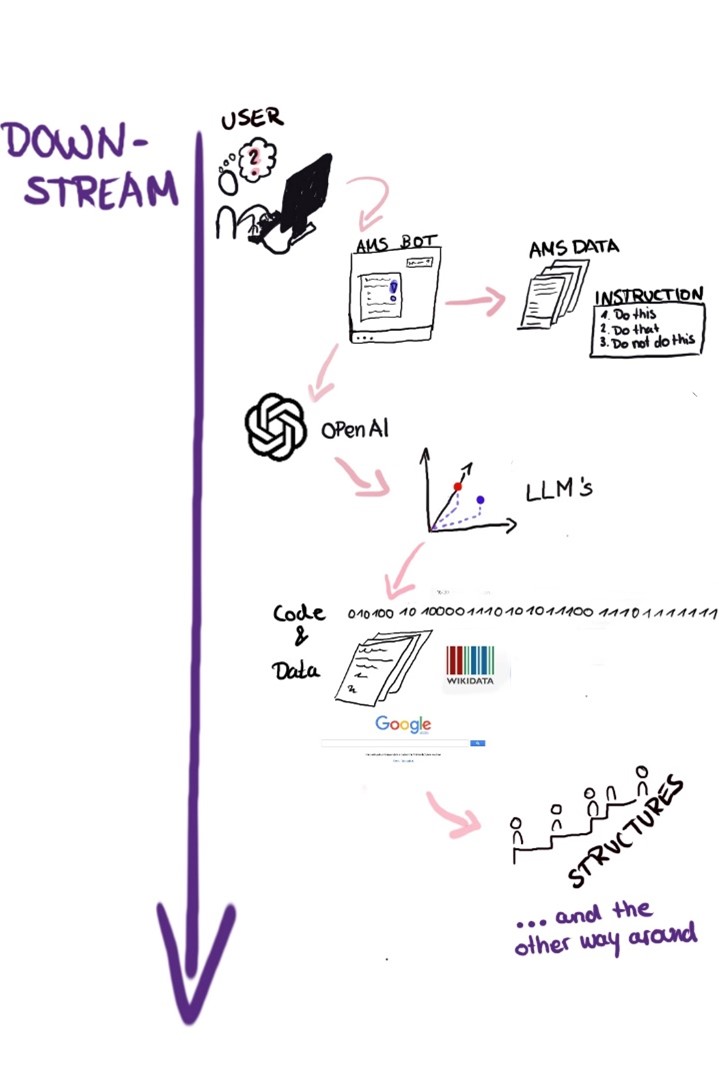 DOWN-
STREAM
USER
?
AMS BOT
AMS DATA
INSTRUCTION
1. Do this
2. Do that
3. Do not do this
OPenAI
LLM's
Code
&
Data
010100 10 10000 1110 10 10 11100 1110 1111111
WIKIDATA
Google
STRUCTURES
... and the
other way around